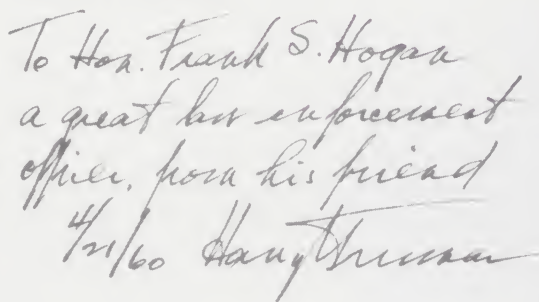 To Hon. Frank S. Hogan
a great law enforcement
officer, from his friend
4/21/60 Harry Truman